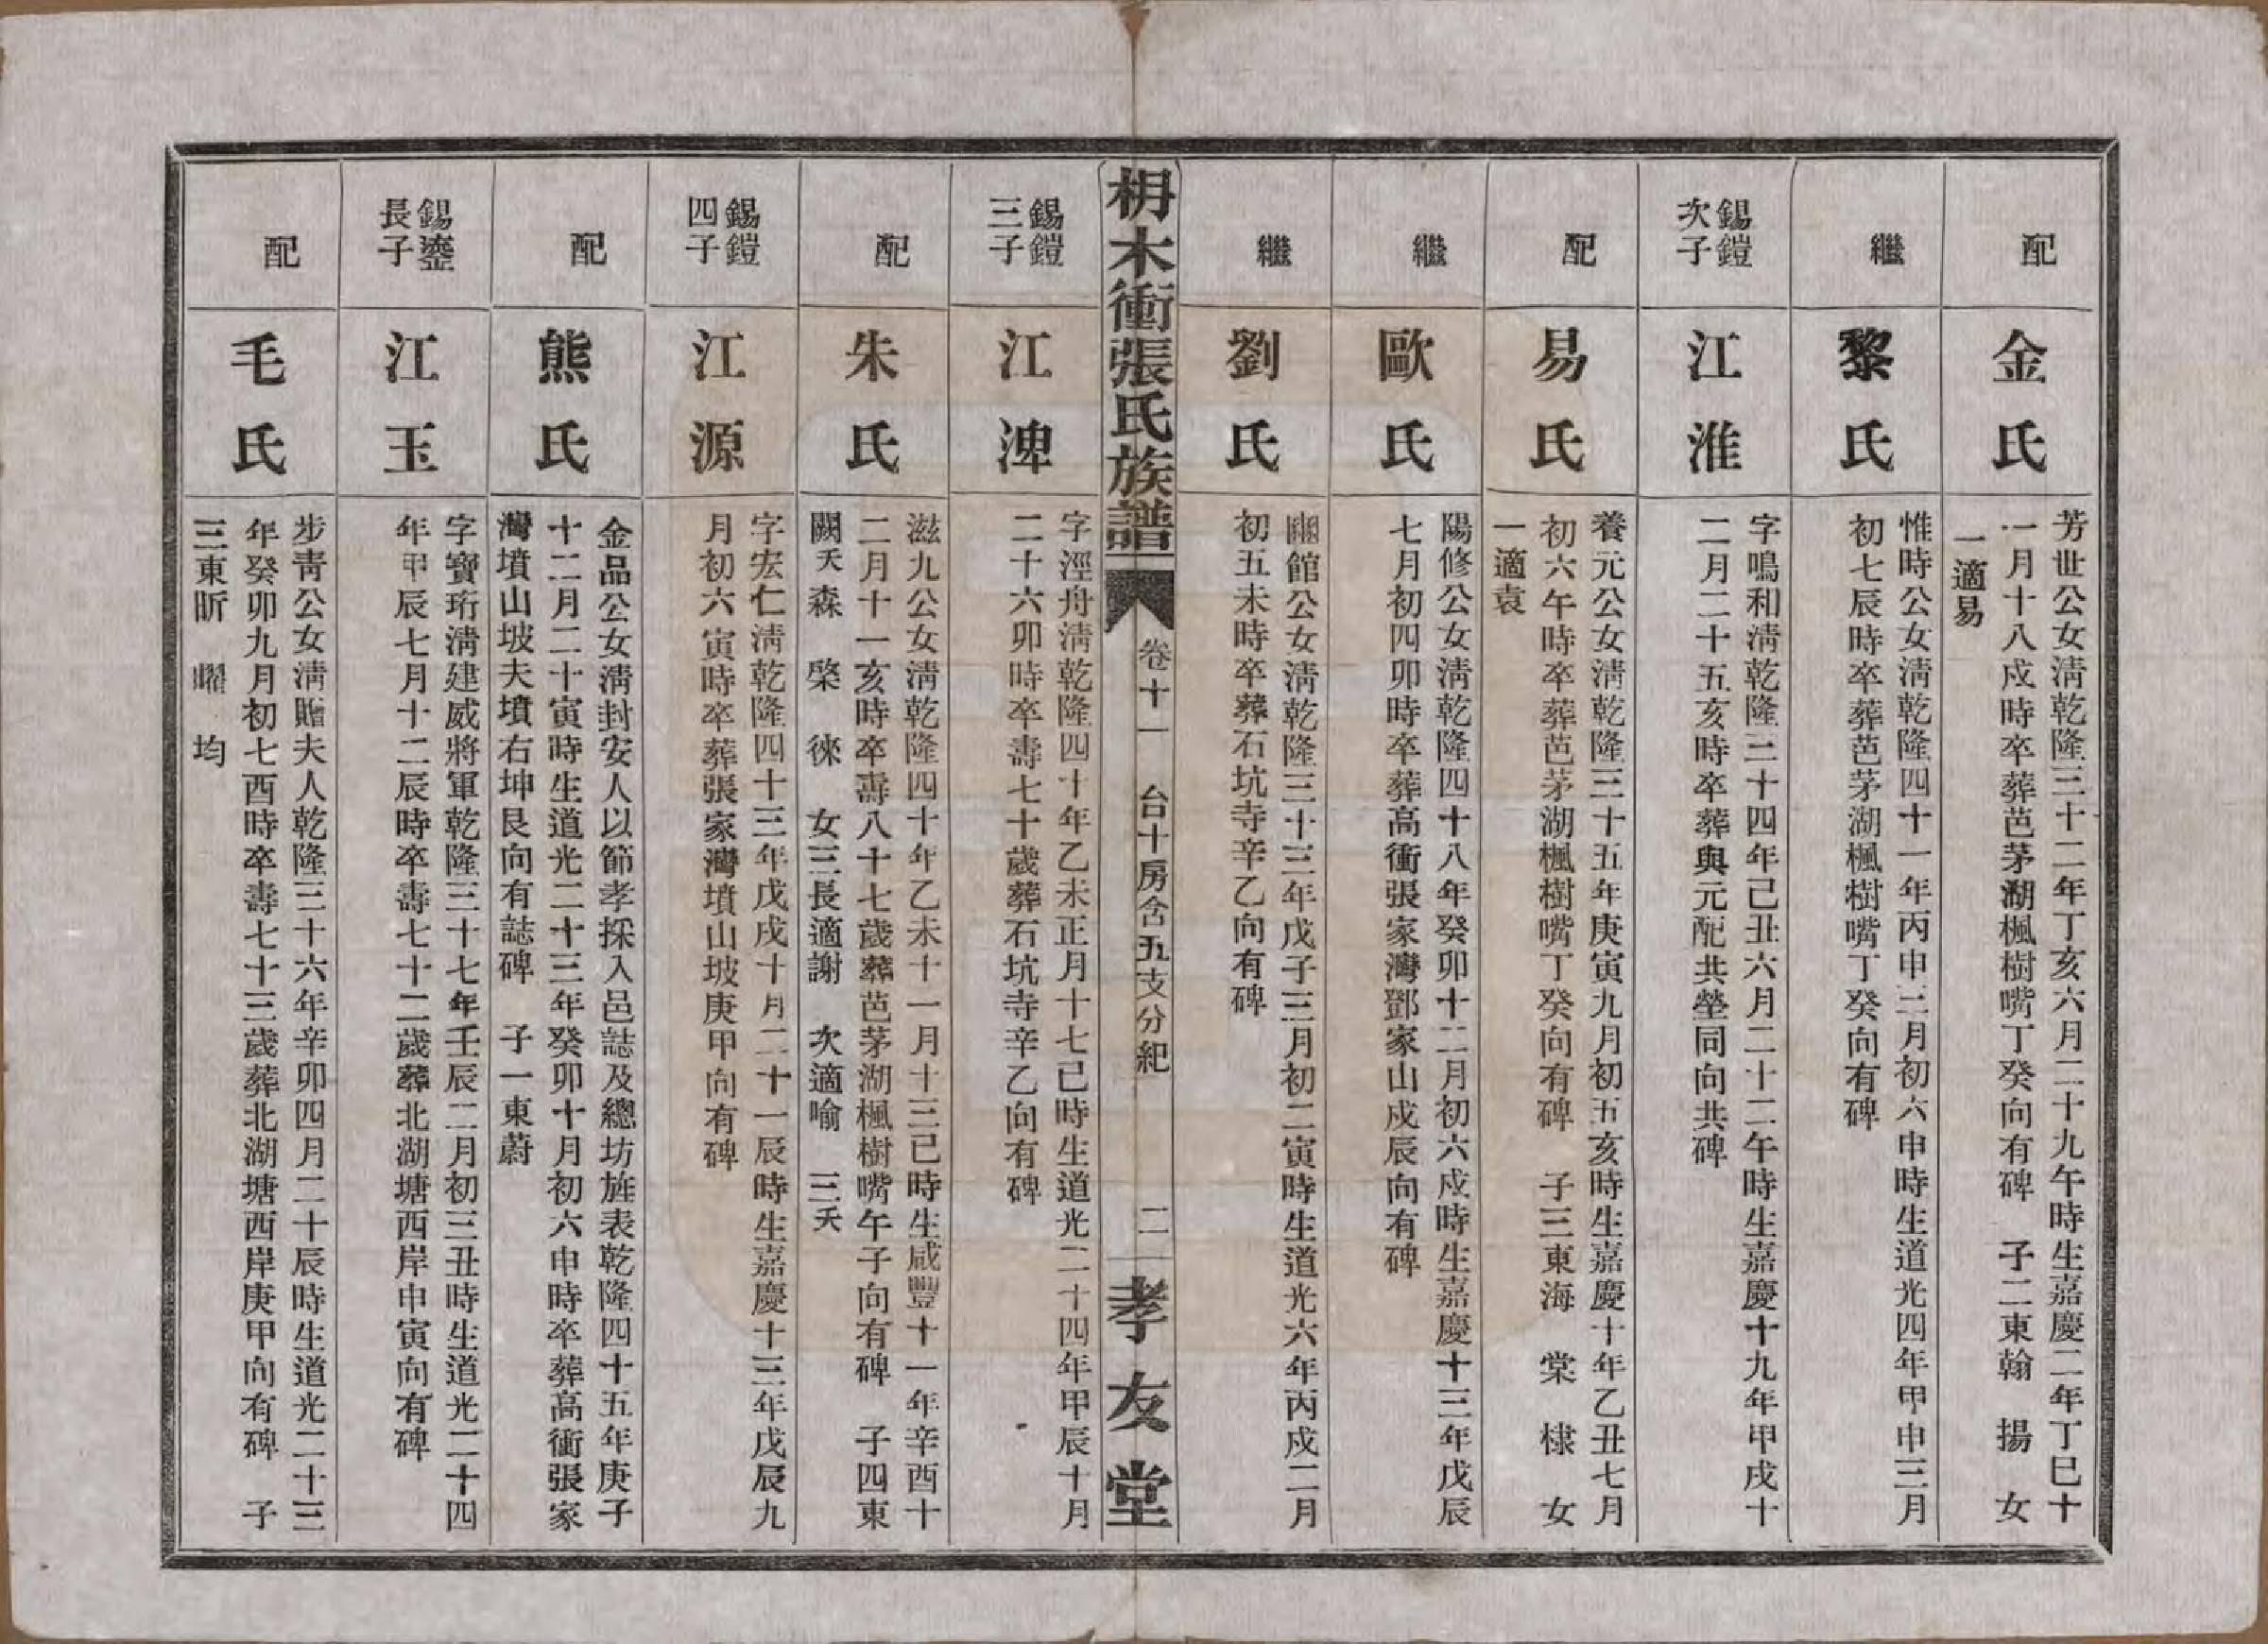 配
金氏
芳世公女淸乾隆三十二年丁亥六月二十九午時生嘉慶二年丁巳十
一月十八戍時卒葬芭茅湖楓樹嘴丁癸向有碑 子二東翰 揚 女
一適易
繼
黎氏
惟時公女淸乾隆四十一年丙申三月初六申時生道光四年甲申三月
初七辰時卒葬芭茅湖楓樹嘴丁癸向有碑
錫鎧
次子
江淮
字鳴和淸乾隆三十四年己丑六月二十二午時生嘉慶十九年甲戍十
二月二十五亥時卒葬與元配共塋同向共碑
配
易氏
養元公女淸乾隆三十五年庚寅九月初五亥時生嘉慶十年乙丑七月
初六午時卒葬芭茅湖楓樹嘴丁癸向有碑 子三東海 棠 棣 女
一適袁
繼
歐氏
陽修公女淸乾隆四十八年癸卯十二月初六戍時生嘉慶十三年戊辰
七月初四卯時卒葬高衝張家灣鄧家山戍辰向有碑
繼
劉氏
圝館公女淸乾隆三十三年戊子三月初二寅時生道光六年丙戍二月
初五未時卒葬石坑寺辛乙向有碑
枬木衝張氏族譜
卷十一 台十房含五支分紀
二
孝友堂
錫鎧
三子
江渒
字涇舟淸乾隆四十年乙未正月十七已時生道光二十四年甲辰十月
二十六卯時卒壽七十歲葬石坑寺辛乙向有碑
配
朱氏
滋九公女淸乾隆四十年乙未十一月十三已時生咸豐十一年辛酉十
二月十一亥時卒壽八十七歲葬芭茅湖楓樹嘴午子向有碑 子四東
闕夭 森 棨 徠 女三長適謝 次適喻 三夭
錫鎧
四子
江源
字宏仁淸乾隆四十三年戊戍十月二十一辰時生嘉慶十三年戊辰九
月初六寅時卒葬張家灣墳山坡庚甲向有碑
配
熊氏
金品公女淸封安人以節孝採入邑誌及總坊旌表乾隆四十五年庚子
十二月二十寅時生道光二十三年癸卯十月初六申時卒葬高衝張家
灣墳山坡夫墳右坤艮向有誌碑 子一東蔚
錫鎏
長子
江玉
字寶珩淸建威將軍乾隆三十七年壬辰二月初三丑時生道光二十四
年甲辰七月十二辰時卒壽七十二歲葬北湖塘西岸申寅向有碑
配
毛氏
步靑公女淸贈夫人乾隆三十六年辛卯四月二十辰時生道光二十三
年癸卯九月初七酉時卒壽七十三歲葬北湖塘西岸庚甲向有碑 子
三東昕 曜 均